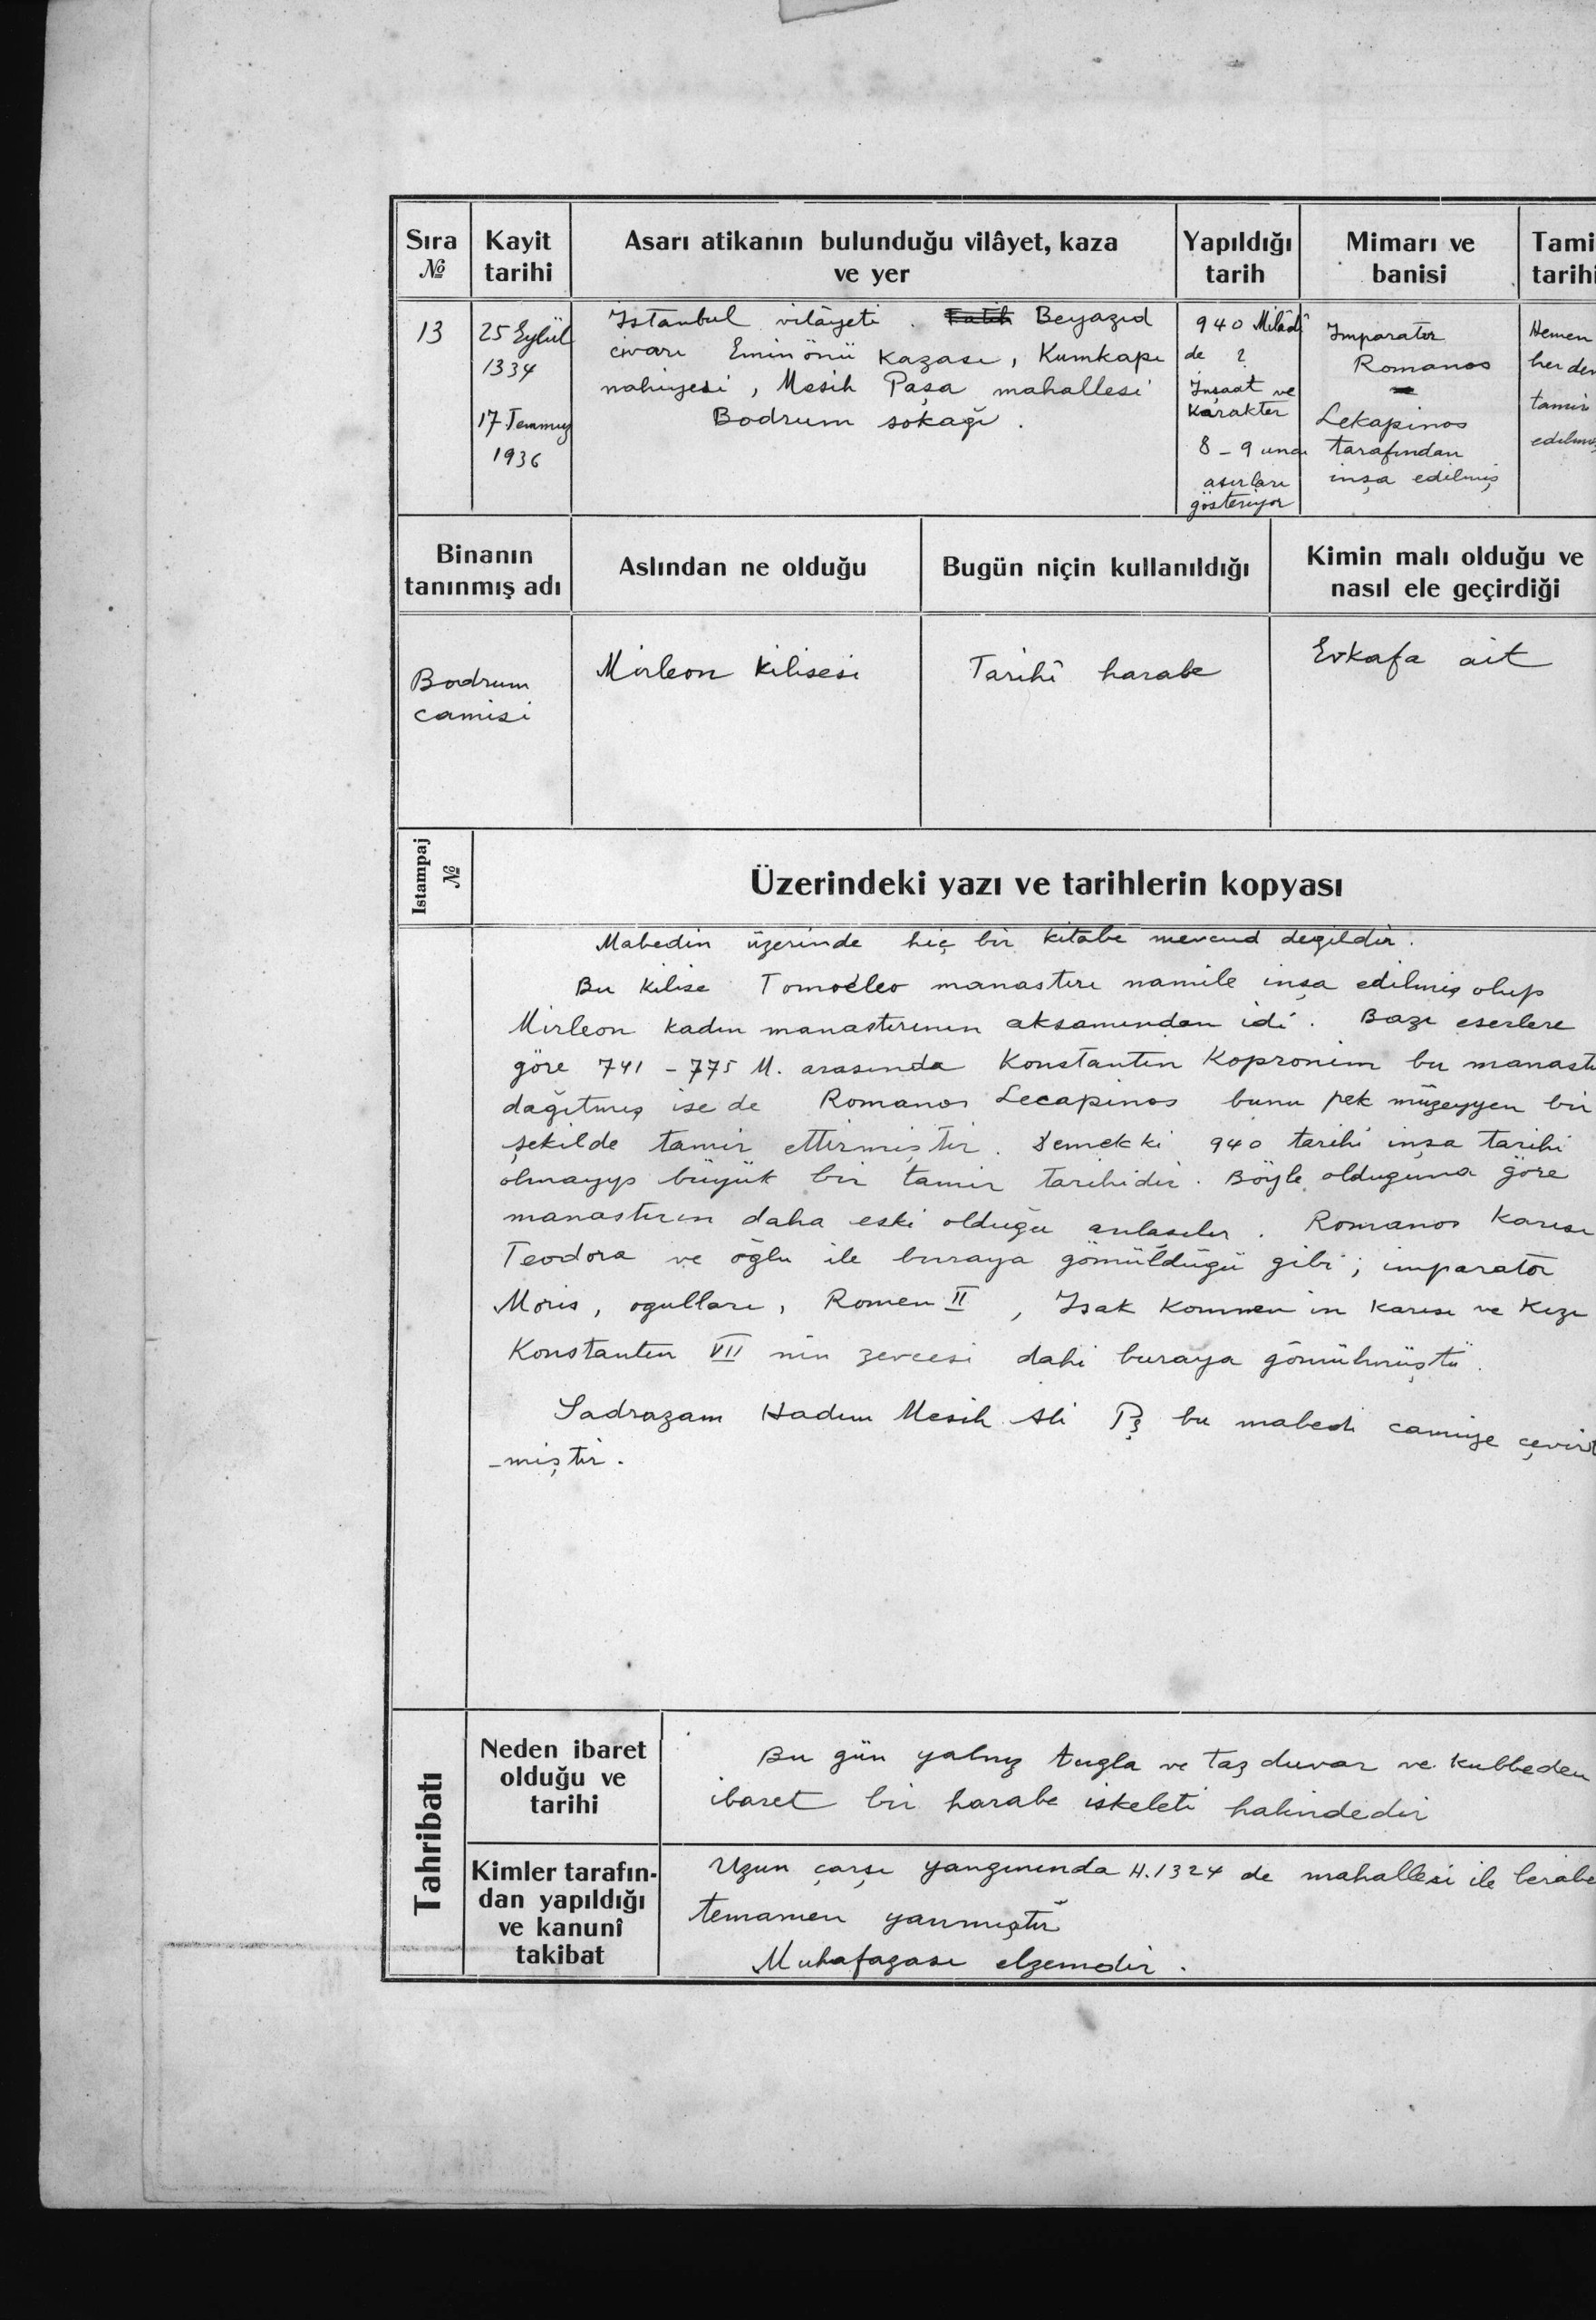 Sıra № Kayit tarihi Asarı atikanın bulunduğu vilâyet, kaza ve yer Yapıldığı tarih Mimarı ve banisi Tami tarihi
13
25 Eylül
1334
17 Temmuz
1936
Istanbul vilâyeti . Fatih Beyazıd
civarı Eminönü kazası, Kumkapı
nahiyesi, Mesih Paşa mahallesi
Bodrum sokağı .
940 Milâdî
de ?
İnşaat ve
Karakter
8 - 9 uncu
asırları
gösteriyor
Imparator
Romanos
Lekapinos
tarafından
inşa edilmiş
Hemen
her der
tamir
edilmiş
Binanın tanınmış adı
Aslından ne olduğu
Bugün niçin kullanıldığı
Kimin malı olduğu ve nasıl ele geçirdiği
Bodrum
camisi
Mirleon Kilisesi
Tarihî harabe
Evkafa ait
Istampaj №
Üzerindeki yazı ve tarihlerin kopyası
Mabedin üzerinde hiç bir kitabe mevcud değildir.
Bu kilise Tomoéleo manastırı namile inşa edilmiş olup
Mirleon kadın manastırının aksamından idi. Bazı eserlere
göre 741 - 775 M. arasında Konstantin Kopronim bu manastı
dağıtmış ise de Romanos Lecapinos bunu pek müzeyyen bir
şekilde tamir ettirmiştir. Demekki 940 tarihi inşa tarihi
olmayıp büyük bir tamir tarihidir. Böyle olduğuna göre
manastırın daha eski olduğu anlaşılır. Romanos karısı
Teodora ve oğlu ile buraya gömüldüğü gibi; imparator
Moris, oğulları, Romen II, Isak Komnen in karısı ve kızı
Konstantin VII nin zevcesi dahi buraya gömülmüştü.
Sadrazam Hadım Mesih Ali Pş bu mabedi camiye çevirt
-miştir.
Tahribatı
Neden ibaret
olduğu ve
tarihi
Bu gün yalnız tuğla ve taş duvar ve kubbeden
ibaret bir harabe iskeleti halindedir
Kimler tarafın-
dan yapıldığı
ve kanunî
takibat
Uzun çarşı yangınında H.1324 de mahallesi ile berabe
temamen yanmıştır
Muhafazası elzemdir.